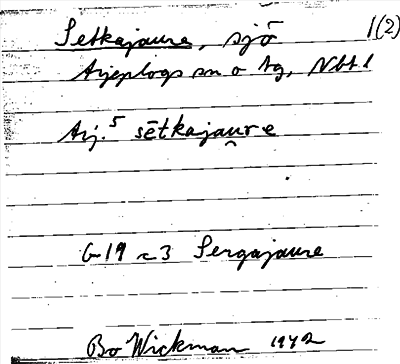 Setkajaure, sjö 1(2)
Arjeplogs sn o tg, Nbt l
Arj.⁵ sētkajau̯re
G19 c3 Sergajaure
Bo Wickman 1942